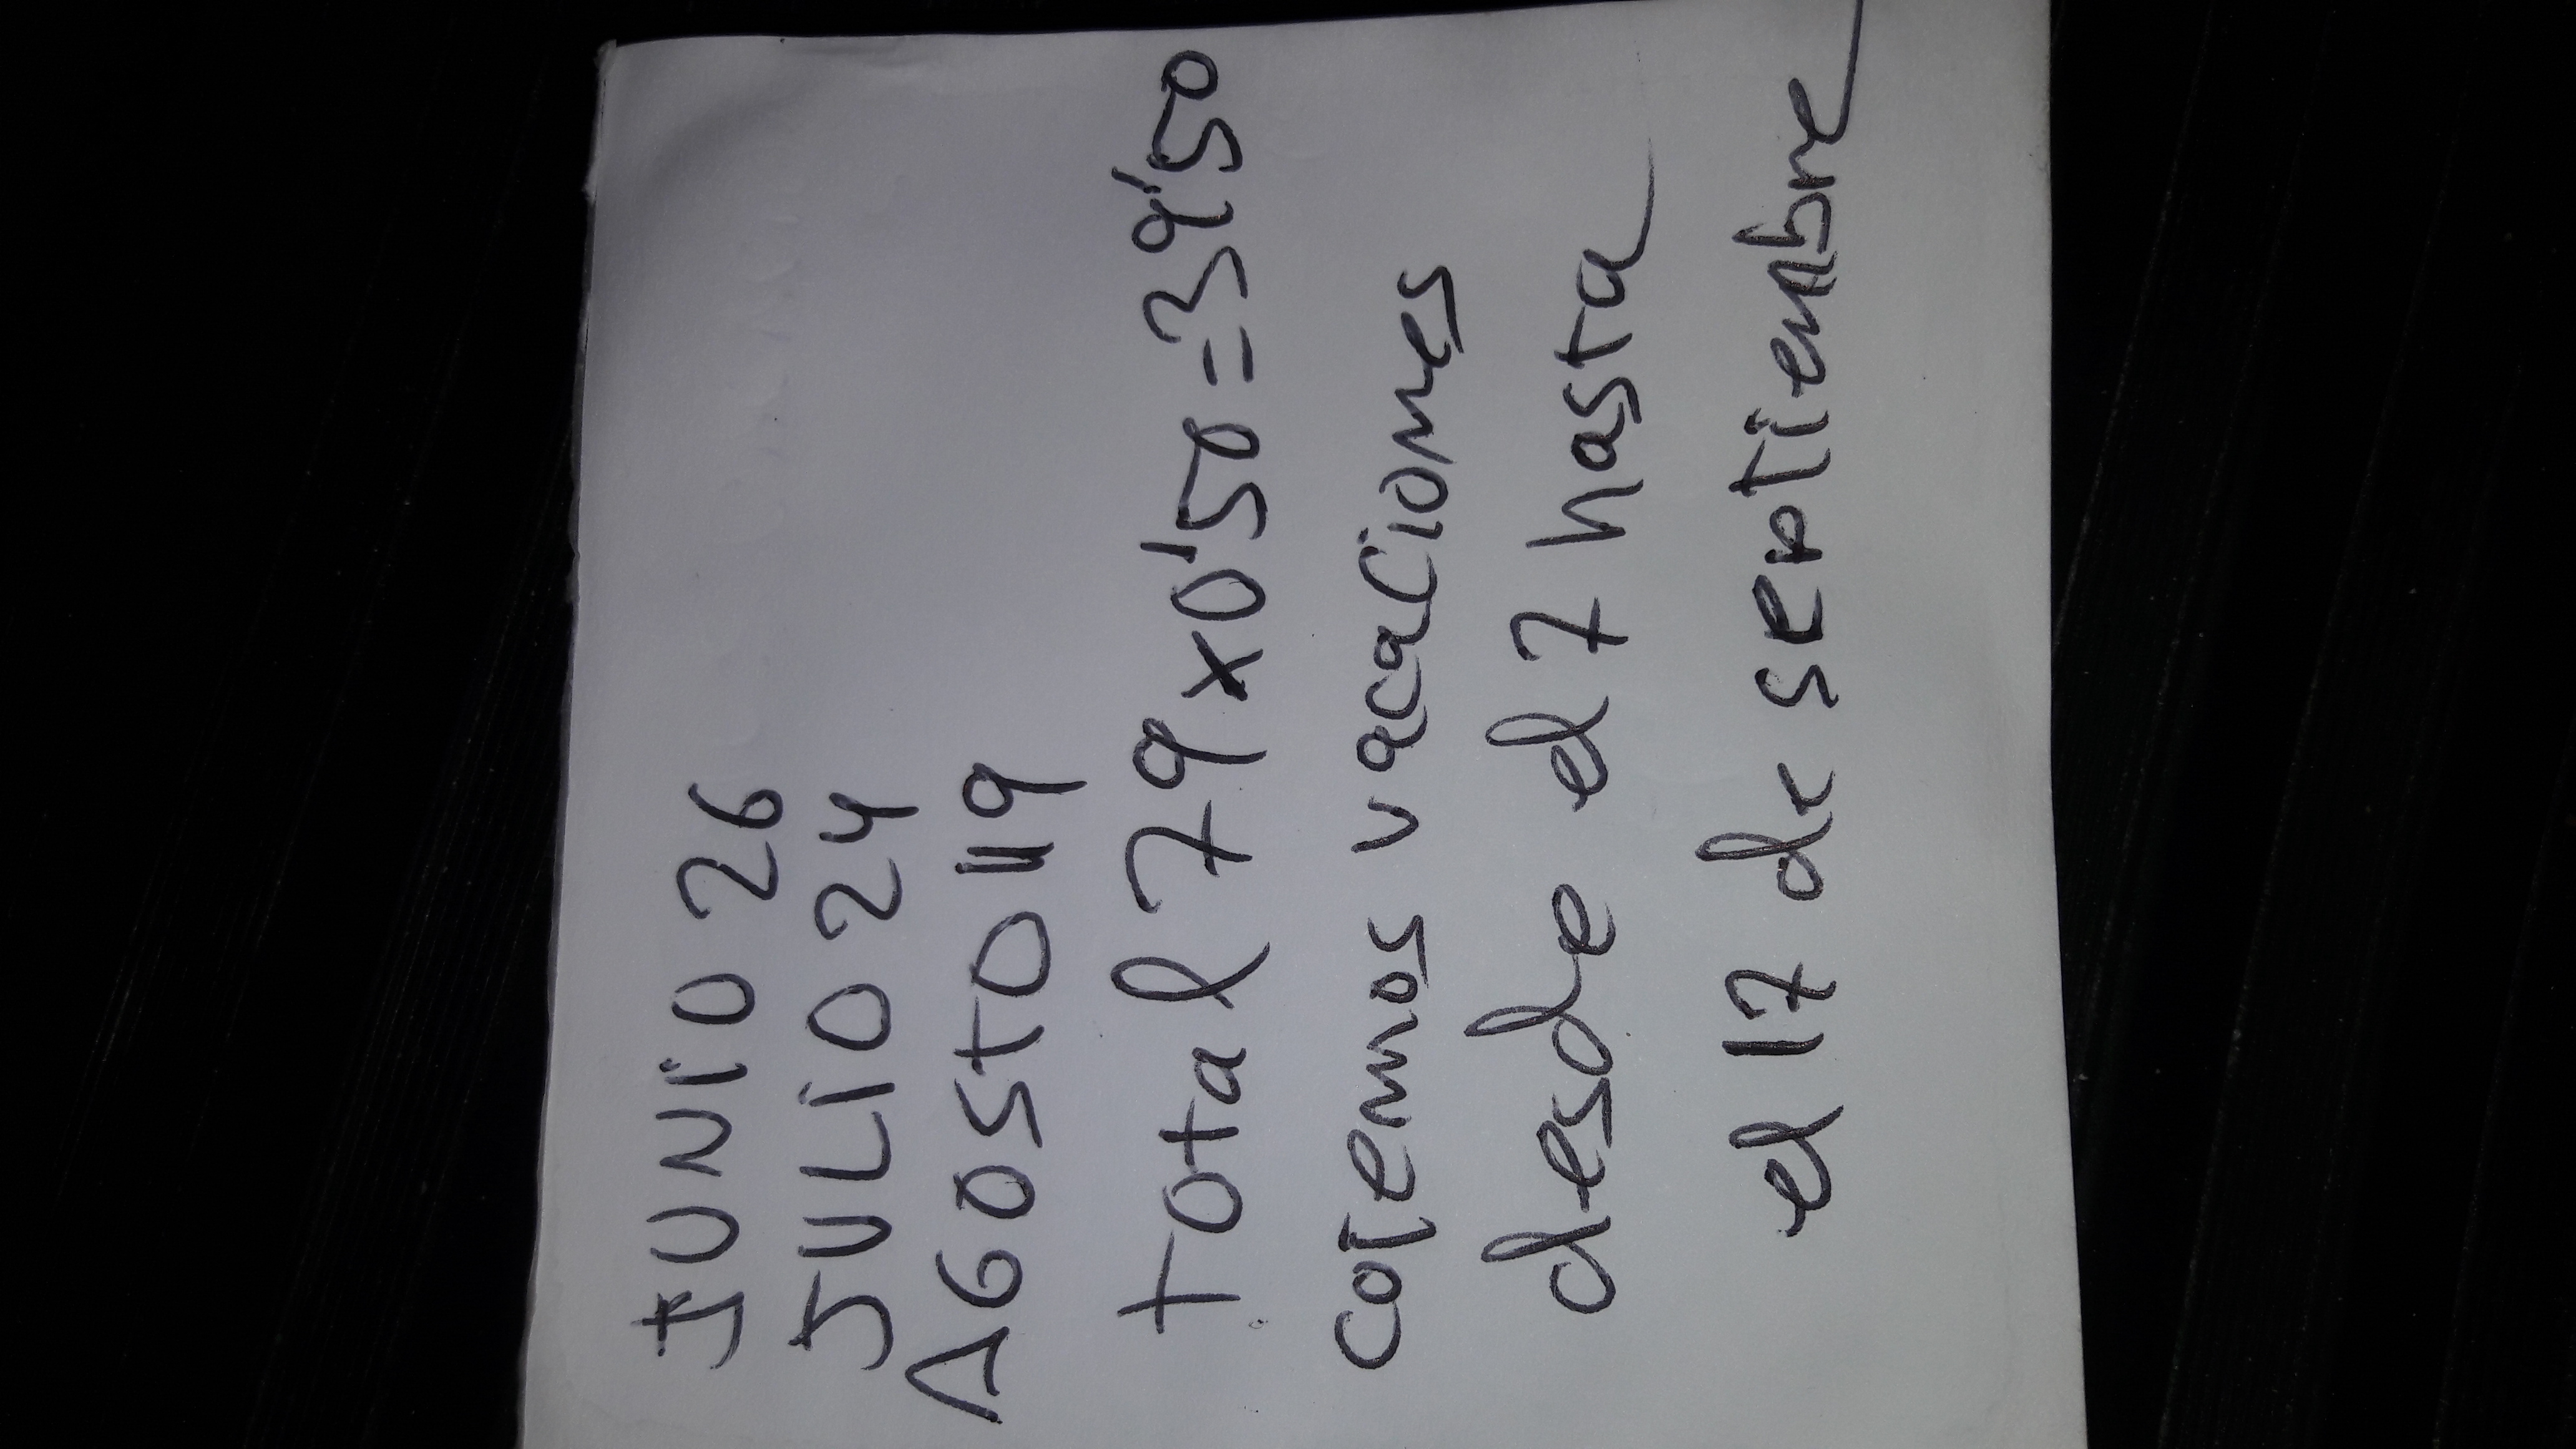 JUNiO 26
JULiO 24
AGOSTO 119
total 79x0'50=39'50
coiemos vacaciones
desde el 7 hasta
el 17 de septiembre